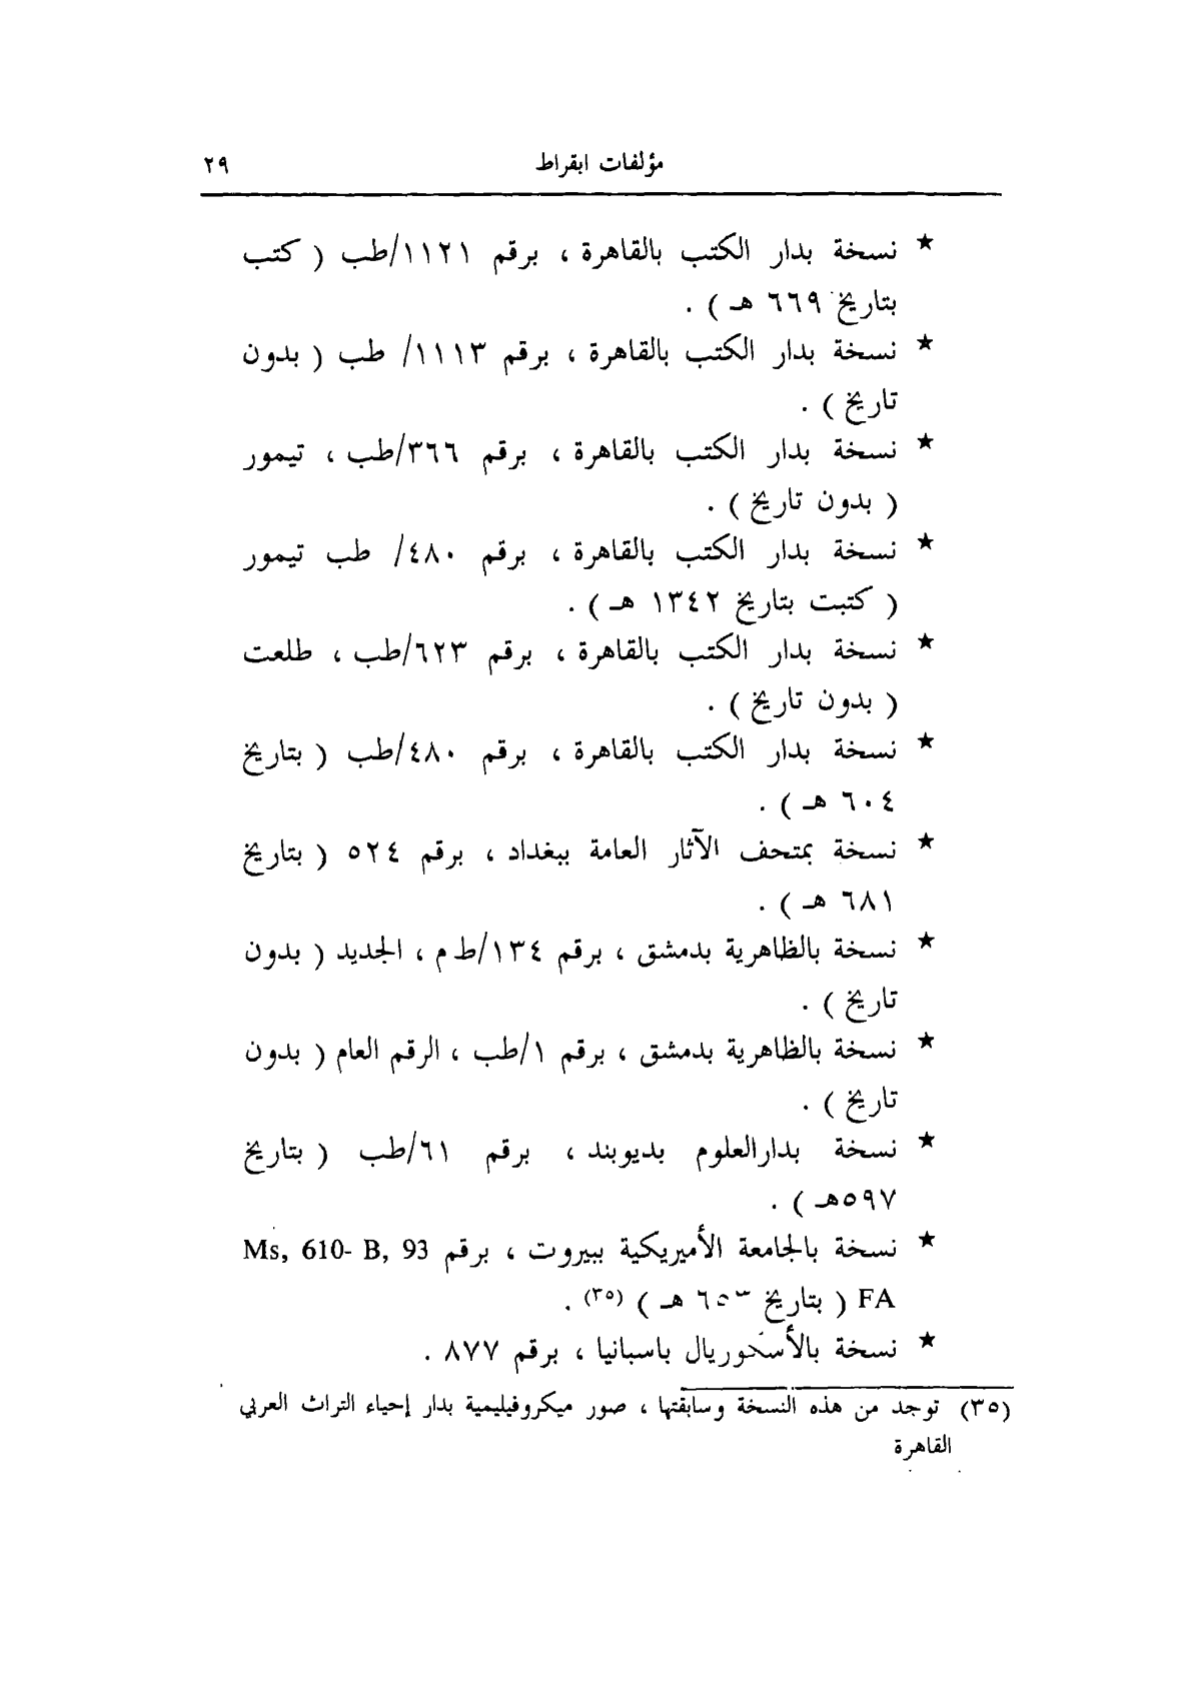 مؤلفات ابقراط ٢٩
★ نسخة بدار الكتب بالقاهرة ، برقم ١١٢١/طب ( كتب
بتاريخ ٦٦٩ هـ ) .
★ نسخة بدار الكتب بالقاهرة ، برقم ١١١٣/ طب ( بدون
تاريخ ) .
★ نسخة بدار الكتب بالقاهرة ، برقم ٣٦٦/طب ، تيمور
( بدون تاريخ ) .
★ نسخة بدار الكتب بالقاهرة ، برقم ٤٨٠/ طب تيمور
( كتبت بتاريخ ١٣٤٢ هـ ) .
★ نسخة بدار الكتب بالقاهرة ، برقم ٦٢٣/طب ، طلعت
( بدون تاريخ ) .
★ نسخة بدار الكتب بالقاهرة ، برقم ٤٨٠/طب ( بتاريخ
٦٠٤ هـ ) .
★ نسخة بمتحف الآثار العامة ببغداد ، برقم ٥٢٤ ( بتاريخ
٦٨١ هـ ) .
★ نسخة بالظاهرية بدمشق ، برقم ١٣٤/ط م ، الجديد ( بدون
تاريخ ) .
★ نسخة بالظاهرية بدمشق ، برقم ١/طب ، الرقم العام ( بدون
تاريخ ) .
★ نسخة بدارالعلوم بديوبند ، برقم ٦١/طب ( بتاريخ
٥٩٧هـ ) .
★ نسخة بالجامعة الأميريكية ببيروت ، برقم Ms, 610- B, 93
FA ( بتاريخ هـ ) (٣٥) .
★ نسخة بالأسكوريال باسبانيا ، برقم ٨٧٧ .
(٣٥) توجد من هذه النسخة وسابقتها ، صور ميكروفيليمية بدار إحياء التراث العربي
القاهرة